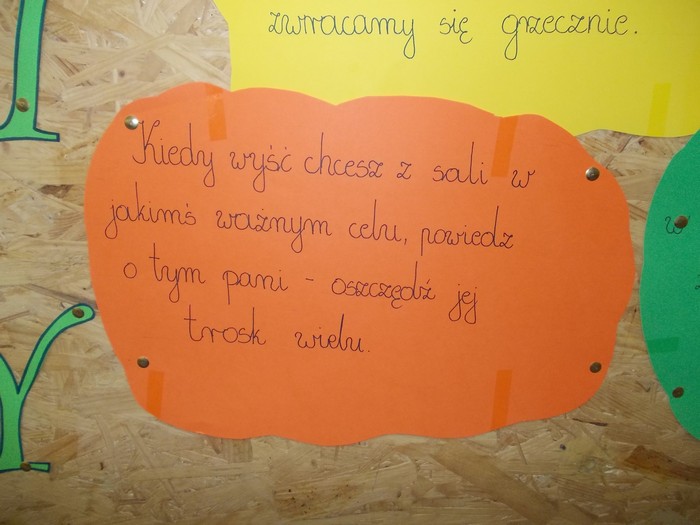 zwracamy się grzecznie.
Kiedy wyjść chcesz z sali w
jakimś ważnym celu, powiedz
o tym pani - oszczędź jej
trosk wielu.
w
Y